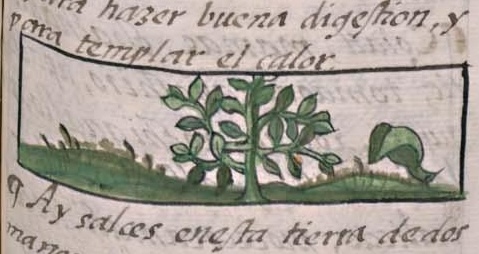 hazer buena digeſtion, y
para templar el calor.
¶ Ay salces eneſta tierra dedos